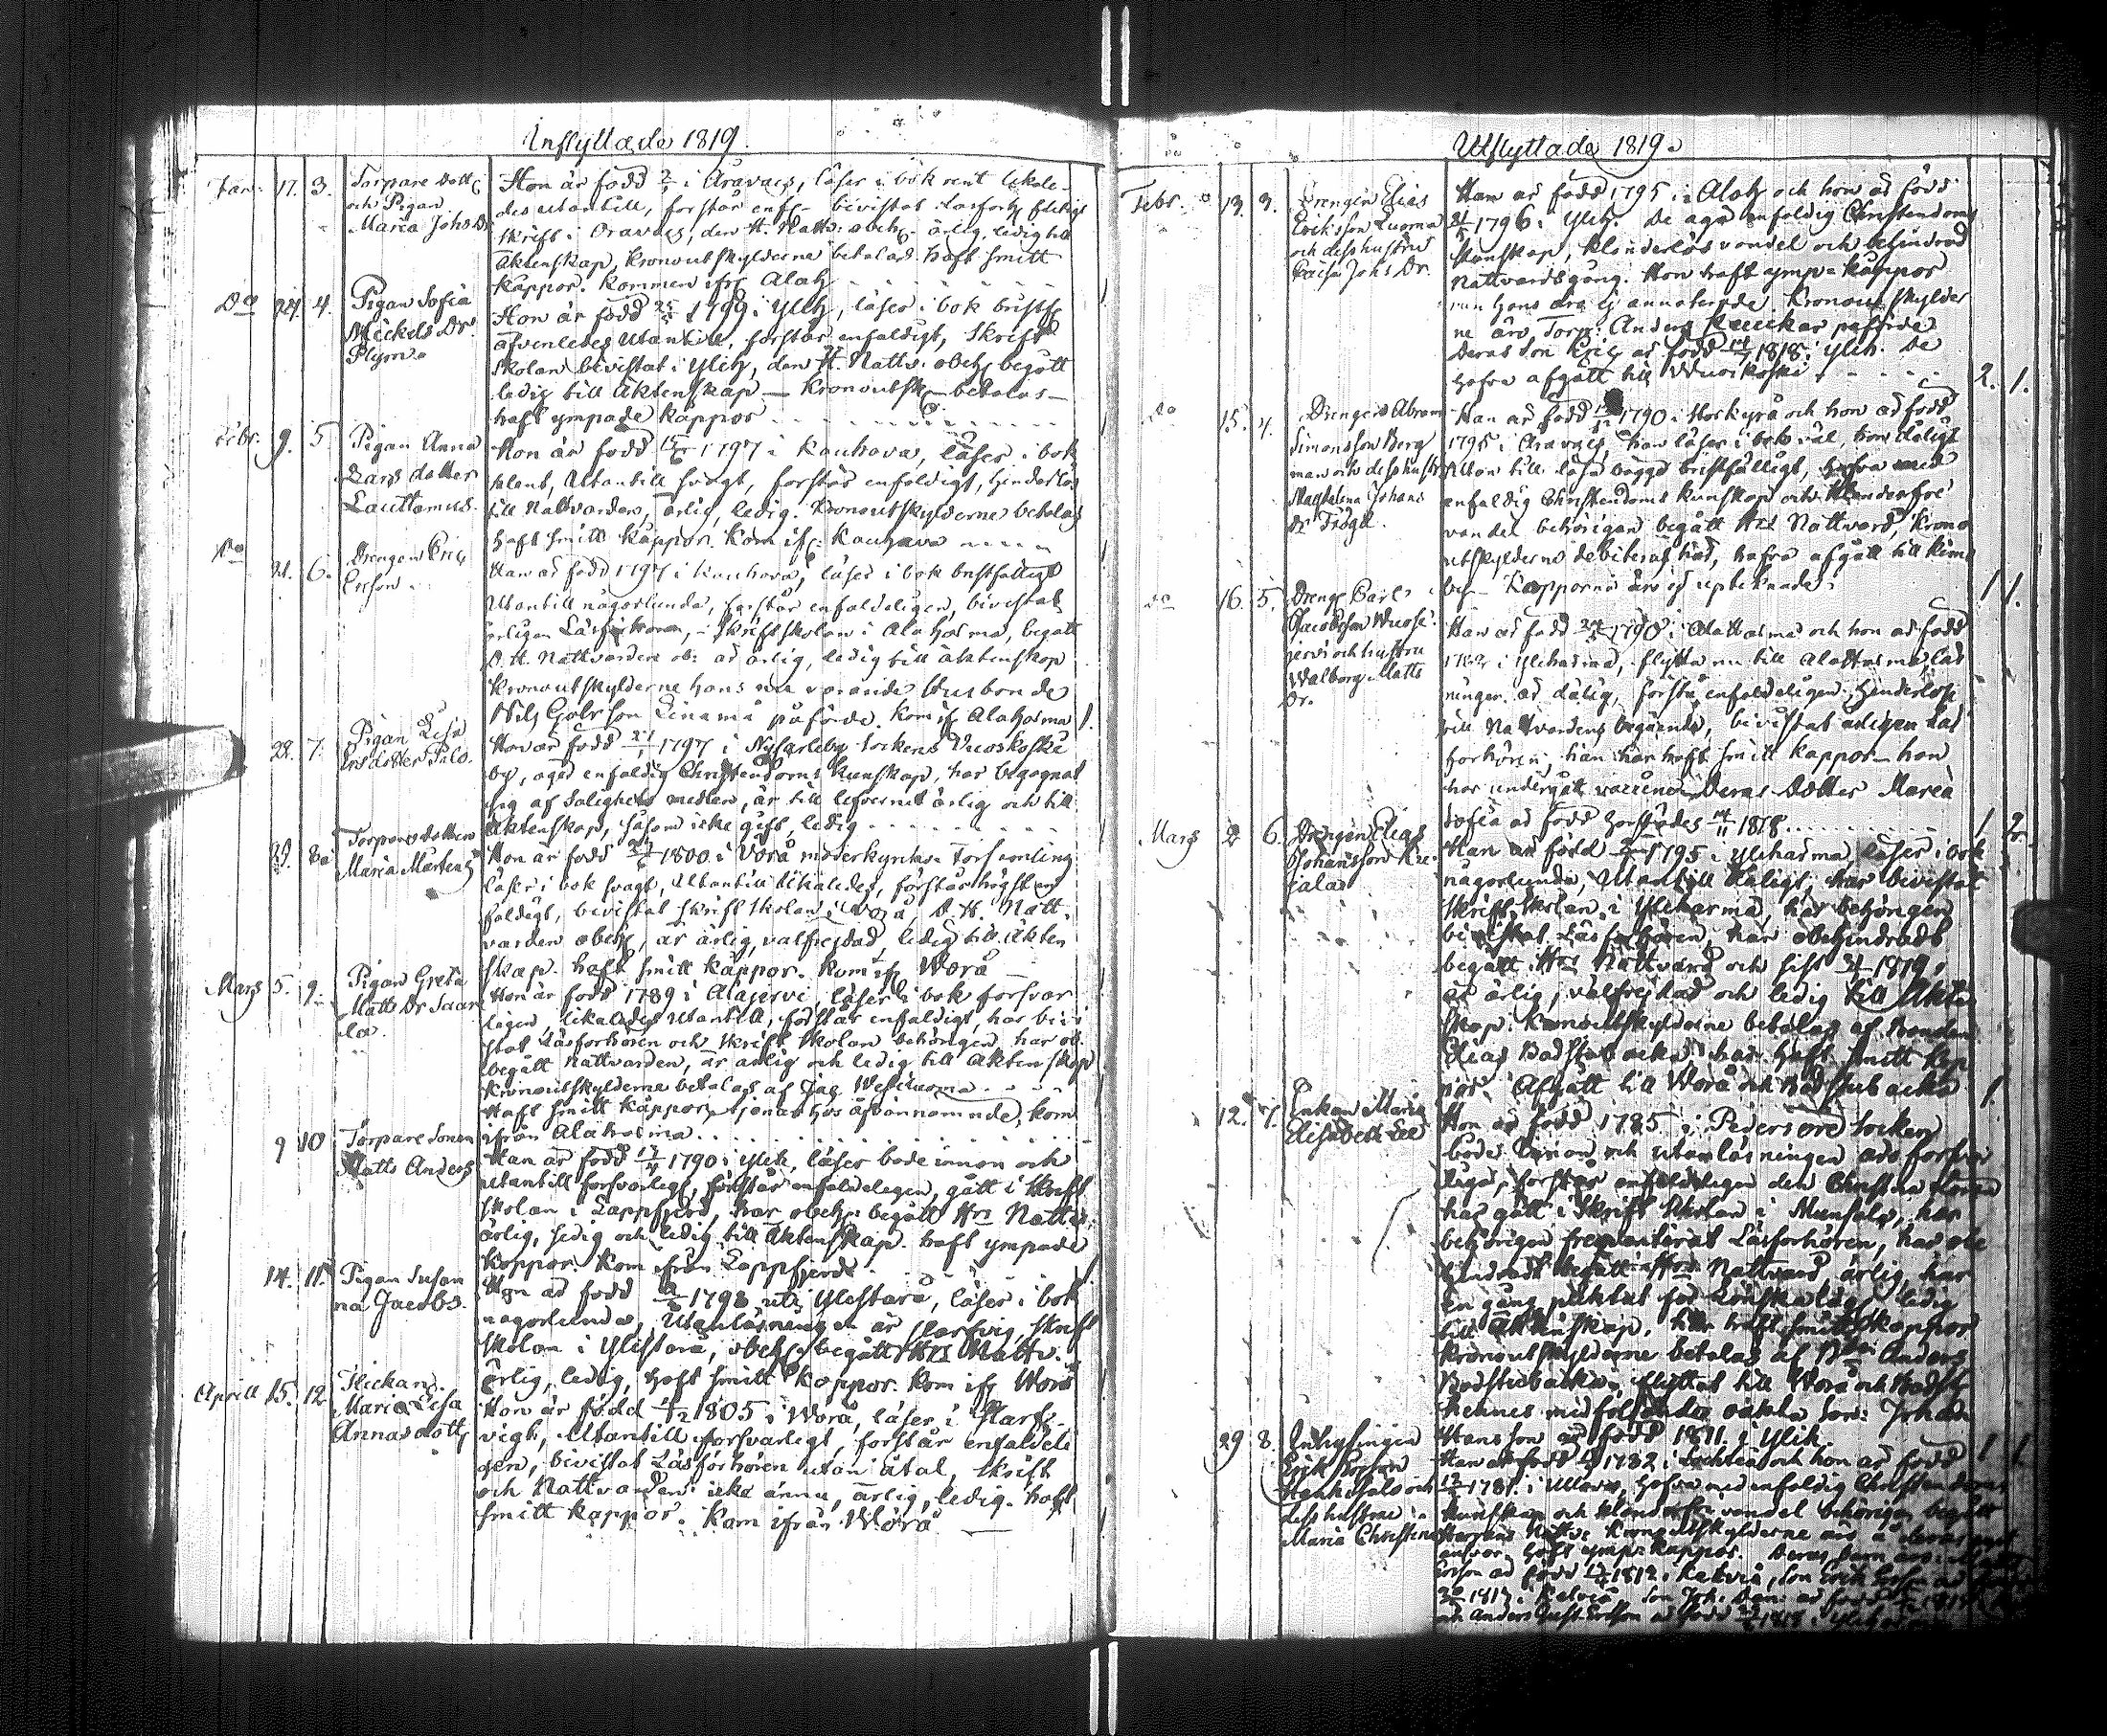 Inflyttade 1819.
Jan: 17. 3. Torpare Dott
och Pigan
Maria Johs Dr
Hon är född i Oravais, läser i bok rent likale-
des utantill, förstår enf- bivistat Läsförh flitigt
skrift i Oravais, den H. Nattv. obeh- ärlig, ledig till
Äktenskap, Kronoutskylderne betalad. haft smitt
koppor. kommen ifr Alah
Do 24. 4. Pigan Sofia
Mickels Dr
Plym
Hon är född 1799 i Ylih, läser i bok bristf
äfvenledes utantill, förstår enfaldigt, Skrift
skolan bivistat i Ylih, den H. Nattv. obeh begått
ledig till Äktenskap — Kronoutsk- betalas —
haft ympade koppor
Febr. 9. 5 Pigan Anna
Lars dotter
Lauttamus.
Hon är född 1797 i Kauhava, läser i bok
, utantill svagt, förstår enfaldigt, hinderlös
till Nattvarden, ärlig, ledig. Kronoutskylderne betalas
haft smitt koppor. Kom ifr: Kauhava
Do 21. 6. Drengen Eric
Ersson
Han är född 1797 i Kauhava, läser i bok bristfälligt
Utantill någorlunda, förstår enfaldeligen, bivistat
årligen Läsförhören, - Skriftskolan i Alahärmä, begått
D. H. Nattvarden ob: är ärlig, ledig till äktenskap
Kronoutskylderne hans nu varande Husbonde
Nils Gabrsson Linamä påförde. kom if Alahärmä 1.
28. 7. Pigan Lisa
Ersdotter Palo.
Hon är född 1797 i Nycarleby sockens Vuoskoski
by, äger enfaldig Christendoms kunskap, har begagnat
sig af Salighets medlen, är till lefvernet ärlig och till
Äktenskap, såsom icke gift, ledig
29. 8. Torparedottren
Maria Mårtens
Hon är född 1800 i Vörå moderkyrka Torf
läser i bok svagt, utantill likaledes, förstår högst en
faldigt, bivistat skriftskolan i Vörå, D. H. Natt-
varden obeh, är ärlig, välfrejdad, ledig till äkten
skap. haft smitt koppor. kom if Wörå
Mars 5. 9. Pigan Greta
Matts Dr Saari
la.
Hon är född 1789 i Alajervi, läser i bok försvar
ligen, likaledes utantill, förstår enfaldigt, har bivi
stat Läsförhören och skrift skolan behörigen, har ob.
begått Nattvarden, är ärlig och ledig till Äktenskap
Kronoutskylderna betalas af Jac Westiluoma
Haft smitt koppor, tjenar hos äfvannämnde, kom
ifrån Alahärmä
9 10 Torpare Sonen
Matts Anders
Han är född 1790 i Ylih, läser både innan och
utantill försvarligt, förstår enfaldeligen, gått i Skrift
skolan i Lappfjerd, har obeh: begått Hrs Nattv.
ärlig, sedig och ledig till Äktenskap. haft ympade
koppor Kom ifrån Lappfjerd
14. 11. Pigan Susan
na Jacobs.
Hon är född 1798 uti Ylistaro, läser i bok
någorlunda, Utanläsningen är slarfvig, Skrift
skolan i Ylistaro, obeh: begått Hrs Nattv.
ärlig, ledig, haft smitt koppor. Kom if Wörå
Aprill 15. 12 Flickan
Maria Lisa
Annasdott
Hon är född 1805 i Wörå, läser i slarf-
vigt, Utantill försvarligt, förstår enfaldeli
gen, bivistat Läsförhören utan åtal, skrift
och Nattvarden icke ännu, ärlig, ledig. haft
smitt koppor. Kom ifrån Wörå
Utflyttade 1819.
Febr. 13. 3. Drengen Elias
Eriksson Luoma
och dess hustru
Caisa Johs Dr.
Han är född 1795 i Alah och hon är född
1796 i Ylih. De äga enfaldig Christendoms
kunskap, klanderlös vandel och obehindrad
nattvardsgång. Hon haft ymp- koppor
men hans äro ej annoterade Kronoutskylder
ne äro Torp: Anders påförde
Deras son Eric är född 1818 i Ylih. De
hafva afgått till Wuoskoski 2. 1.
do 15. 4. Drengen Abram
Simonsson Berg
man och dess hustr
Magdalena Johans
Dr Frögd.
Han är född 1790 i Storkyro och hon är född
1795 i Oravais, han läser i bok väl, hon dåligt
Utan till läsa bägge bristfälligt, hafva med
enfaldig Christendoms kunskap och klanderfri
vandel behörigen begått Hrs Nattvard, Krono
utskylderna debiteras här, hafva afgått till Kim
Kopporna äro ej upteknade. 1 1.
do 16. 5. Dreng Carl
Jacobsson Wuosi
jervi och hustru
Walborg Matts
Dr.
Han är född 1790 i Alahärmä och hon är född
i Ylihärmä, flytta nu till Alahärmä, läs
ningen är dålig, förstå enfaldeligen. hinderlöse
till Nattvardens begående, bivistat årligen Läs
förhören, han har haft smitt koppor — hon
har undergått vaccinen. Deras Dotter Maria
Sofia är född härstädes 1818 1 2.
Mars 2 6. Drengen Elias
Johansson
jala
Han är född 1795 i Ylihärmä, läser i bok
någorlunda, Utantill dåligt, har bivistat
Skrift skolan i Ylihärmä, har behörigen
bivistat Läsförhören, har obehindradt
begått Hrs Nattvard och sist 1819,
är ärlig, välfrejdad och ledig till Äkten
skap. Kronoutskylderne betalas af Bonden
Elias Badstubacka har haft smitt kop
por. Afgått till Wörå och Badstubacka 1
12. 7. Enkan Maria
Elisabeth
Hon är född 1785 i Pedersöre socken
både innan och utanläsningen äro försvar
liga, förstår enfaldeligen den Christna Läran
har gått i Skrift skolan i Munsala, har
behörigen freqventerat Läsförhören, har obe
hindradt begått Hrs Nattvard, ärlig, har
En gång pliktat för Lönskaläge, ledig
till Äktenskap. har haft smitt koppor
Kronoutskylderne betalas af Anders
Badstubacka, flyttat till Wörå och Badst
Hennes medföljande oäkta Son: Johan
Hansson är född 1811 i Ylih. 1 1.
29 8. Inhysingen
Erik Ersson
och
dess hustru
Maria Christina
Han är född 1782 i Lochteå och hon är född
1781 i Ullava, hafva med enfaldig Christendoms
kunskap och klanderfri vandel behörigen begått
Herrans Nattv. Kronoutskylderne äro å deras
ansvar, haft ymp: koppor. Deras barn äro:
Ersson är född 1812 i Kelviå, son Erik Ersson är
1813 i Kelviå Son Joh. Dan: är född
och Anders Gust. Ersson är född 1818 i Ylih